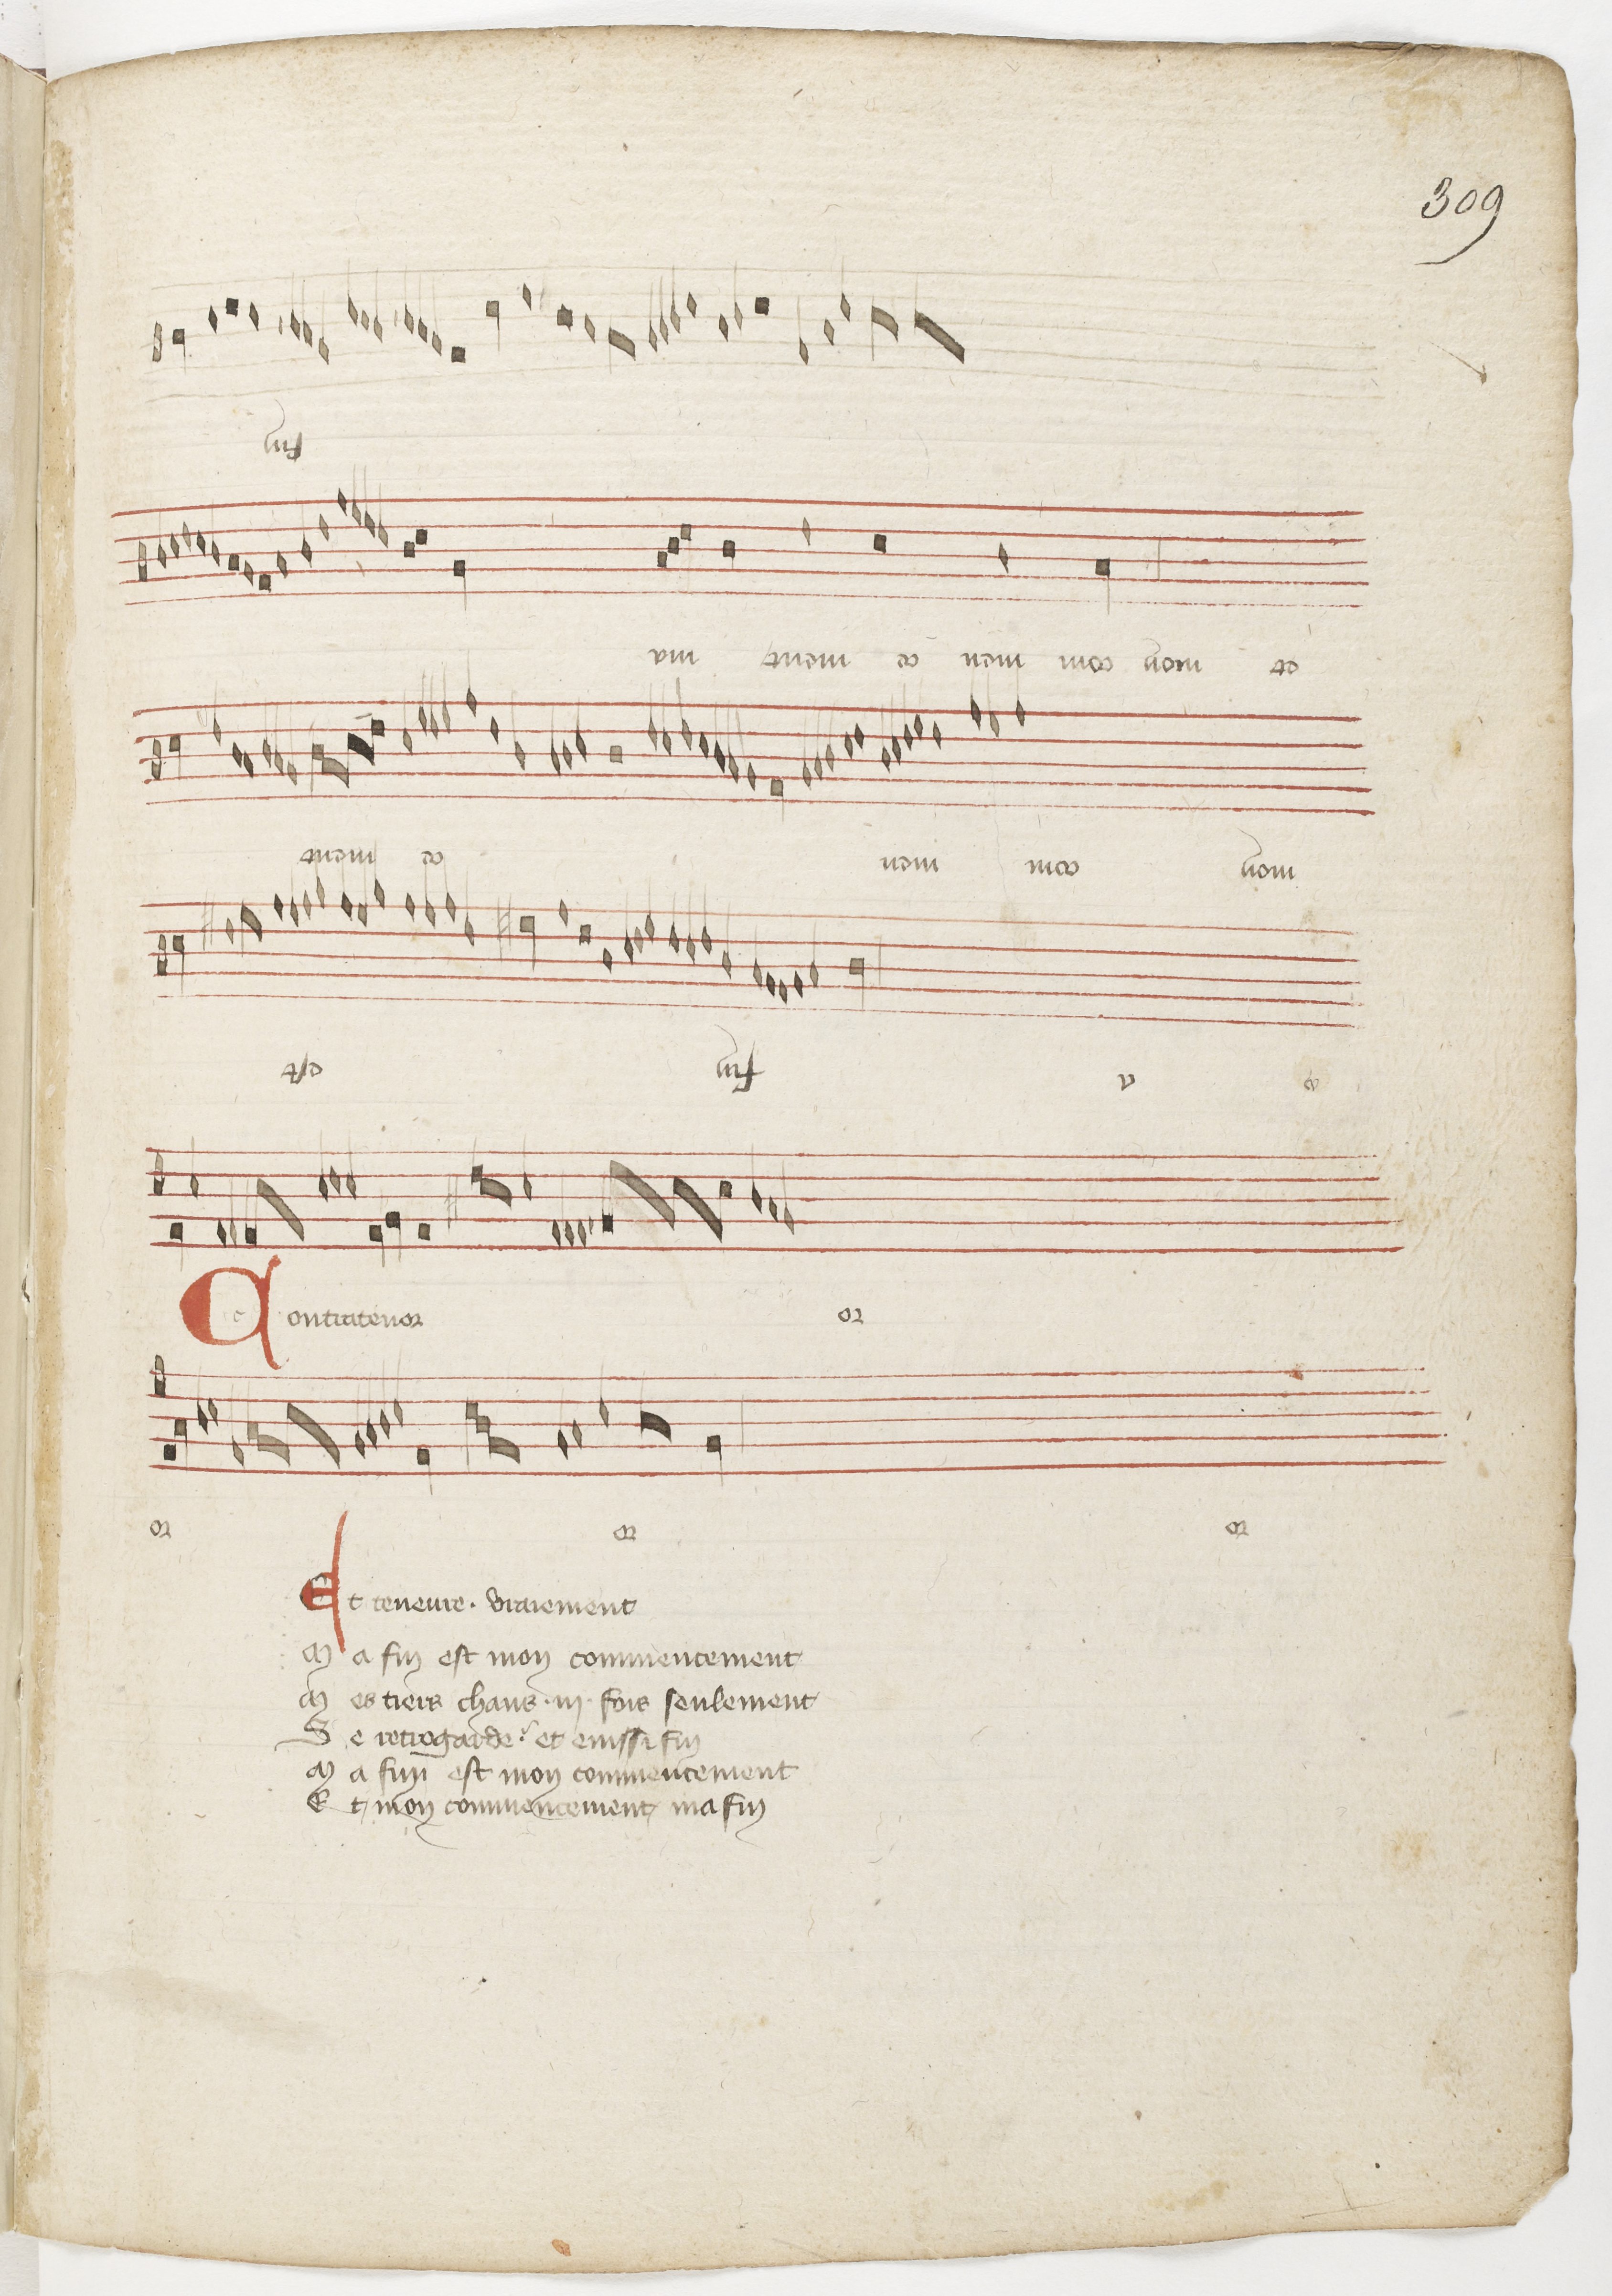 309
fin
et mon com men ce ment ma
mon com men ce ment
e a fin est
Contratenor or
or or or
Et teneure. vraiement
M a fin est mon commencement
M es tiers chans .iij. fois seulement
S e retrogarde et einssi fin
M a fin est mon commencement
E t mon commencement ma fin